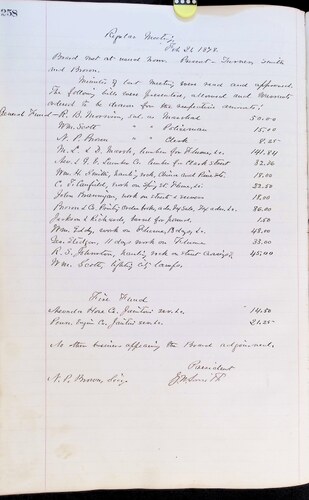 258
Regular Meeting
Feb 26 1878.
Board met at usual hour. Present - Turner, Smith
and Brown.
Minutes of last meeting were read and approved.
The following bills were presented, allowed and warrants
ordered to be drawn for the respective amounts:
General Fund - R. B. Morrison, sal. as Marshal 50.00
Wm. Scott " " Policeman 15.00
N. P. Brown " " Clerk 8.25
M. L. & D. Marsh, lumber for Flume &c.
Nev. & G. V. Lumber Co. lumber for Clark Street
Wm. H. Smith, hauling rock, China and Pine Sts. 18.00
C. F. Canfield, work on Spg. St. Flume, &c. 22.50
John work on street & sewers 18.00
Brown & Co. Printing
Jackson & Richards, barrel for 1.50
Wm. Eddy, work on Flume, 13 days, &c. 48.00
Geo. 11 days work on Flume 33.00
R. S. Johnston, hauling rock on street 45.00
Wm. Scott, lighting city lamps
Fire Fund
Nevada Hose Co. Janitor 14.50
Penn. Engine Co. Janitor 21.25
No other business appearing the Board adjourned.
President
N. P. Brown, E. M. Smith